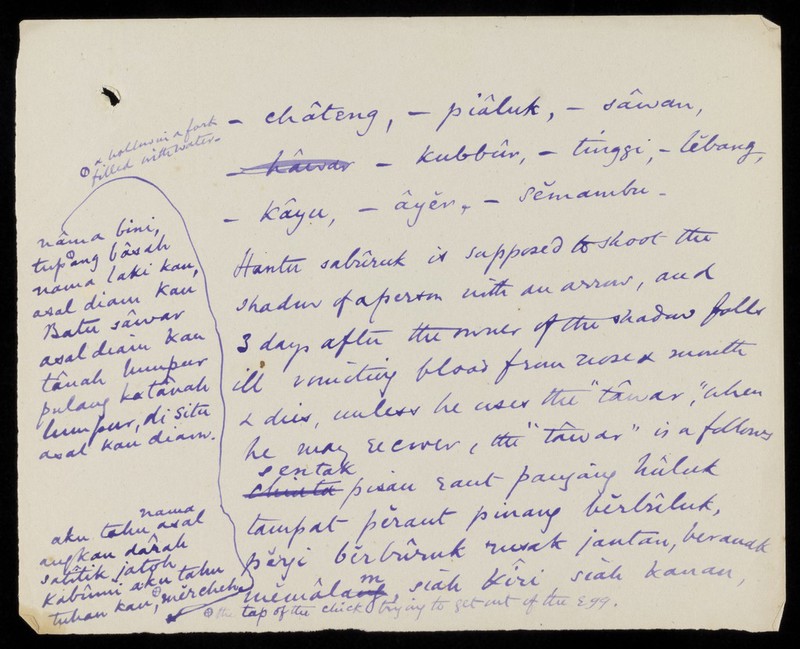 - châteng, - piâluk, - sâwan,
- hâwar - kubbûr, - tinggi, - lĕbang,
- kâyu, - âyĕr, - sĕmambu -
Hantu sabûruk is supposed to shoot the
shadow of a person with an arrow, and
3 days after the owner of the shadow falls
ill vomiting blood from nose & mouth
& dies, unless he uses the "tâwar", when
he may recover, the "tâwar" is a follows
sentak
pisau raut panjâng hûluk
tampat pĕraut pinang bĕrbûluk,
pĕrgi bĕrbûruk rusak jantan, beranak
mĕmâlam, siâh kîri siâh kanan,
⊙ a hollow in a fork
filled with water -
nâma bini,
tupang bâsah
nama laki kau,
asal diam kau
Batu sâwar
asal diâm kau
tânah lumpur
pulang ka tânah
lumpur, di situ
asal kau diam.
nama
aku tahu asal
angkau dârah
satîtik jatoh
kabûmi aku tahu
tuhan kau, mĕrcheha
⊙ the tap of the chick trying to get out of the egg.